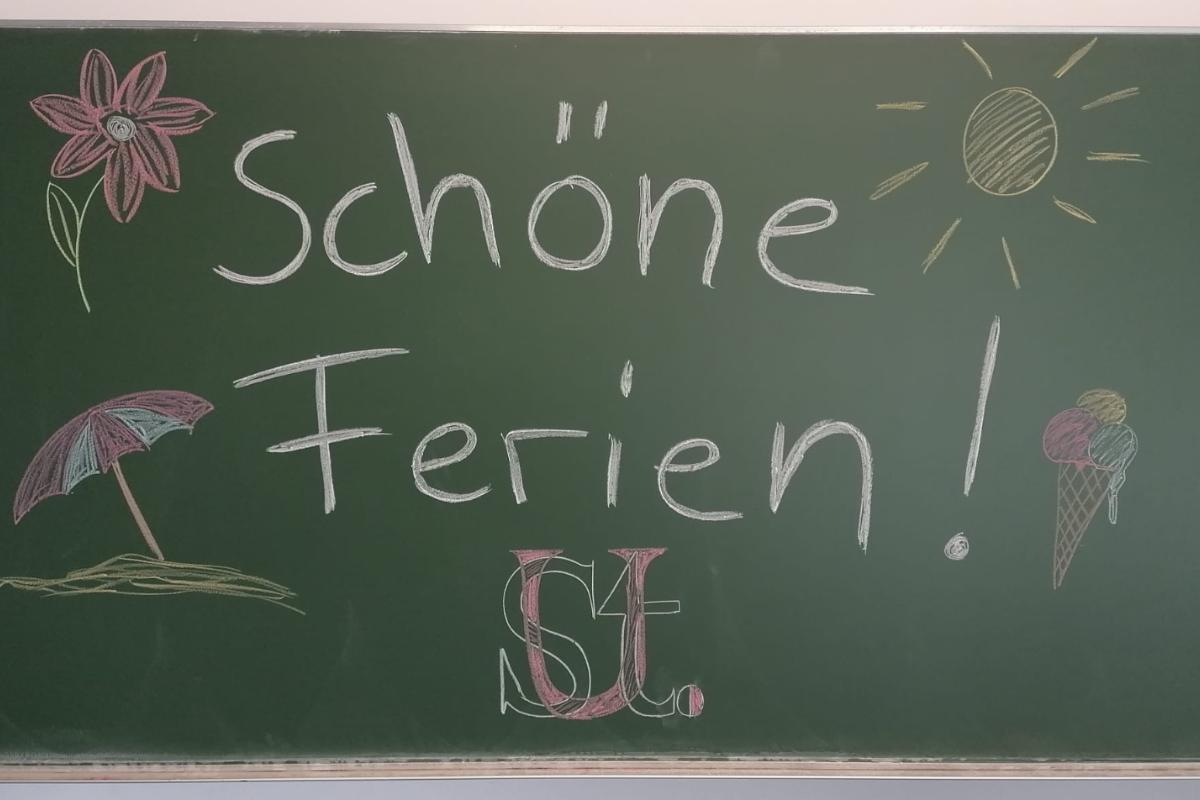 Schöne
Ferien!
St. U.